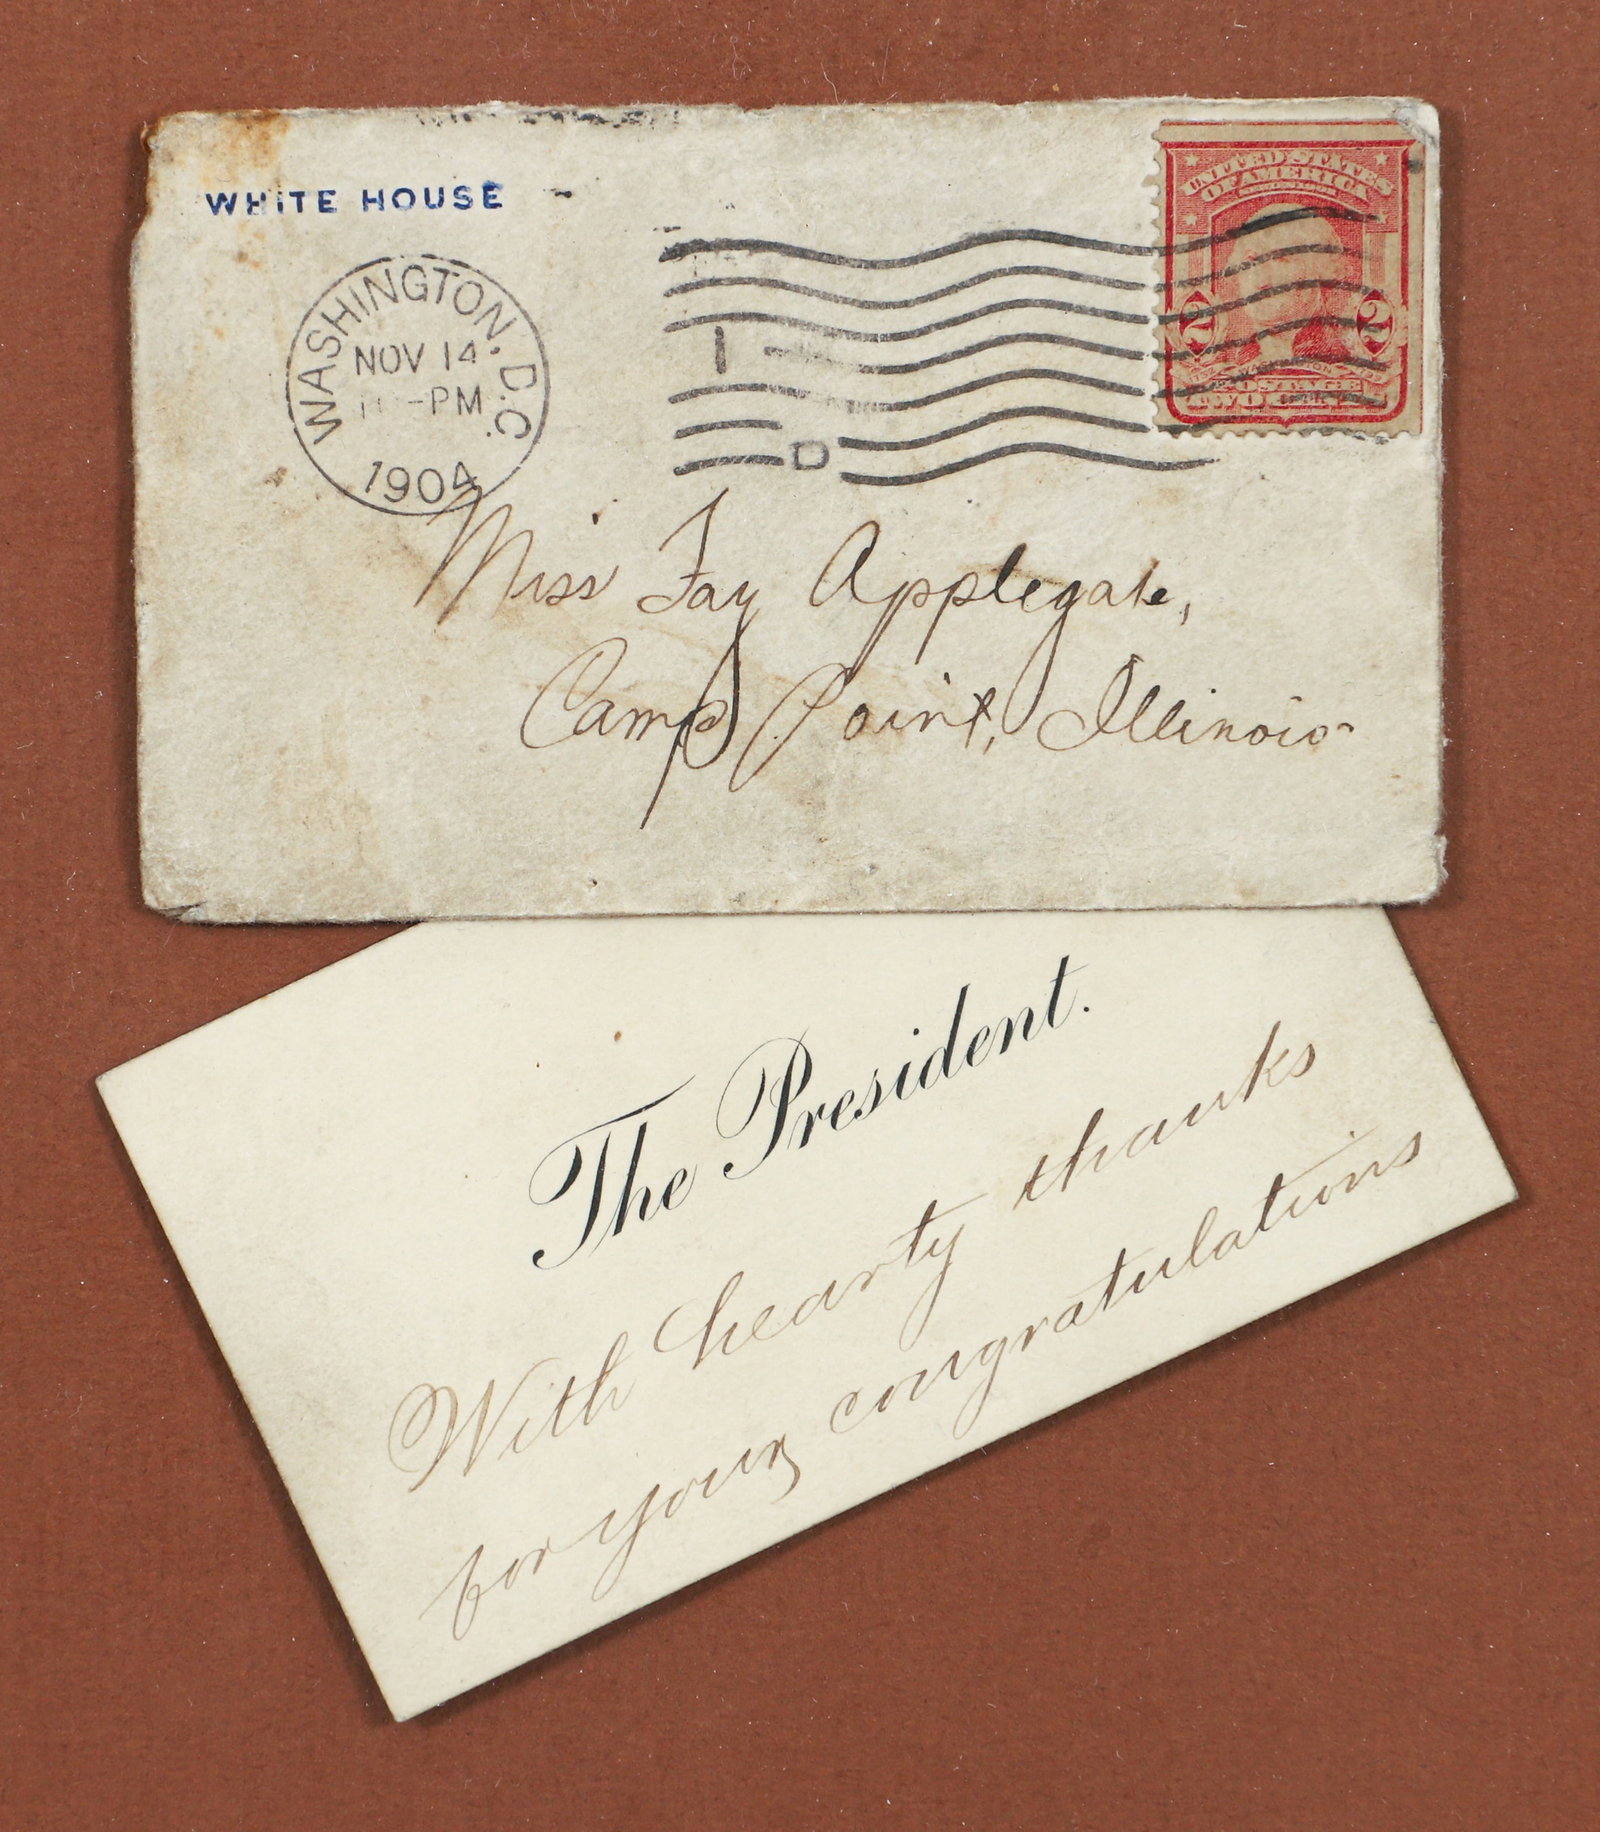 WHITE HOUSE
WASHINGTON, D.C.
NOV 14
-PM
1904
1
D
UNITED STATES
OF AMERICA
2 2
POSTAGE
TWO
Miss Fay Applegate,
Camp Point, Illinois
The President.
With hearty thanks
for your congratulations